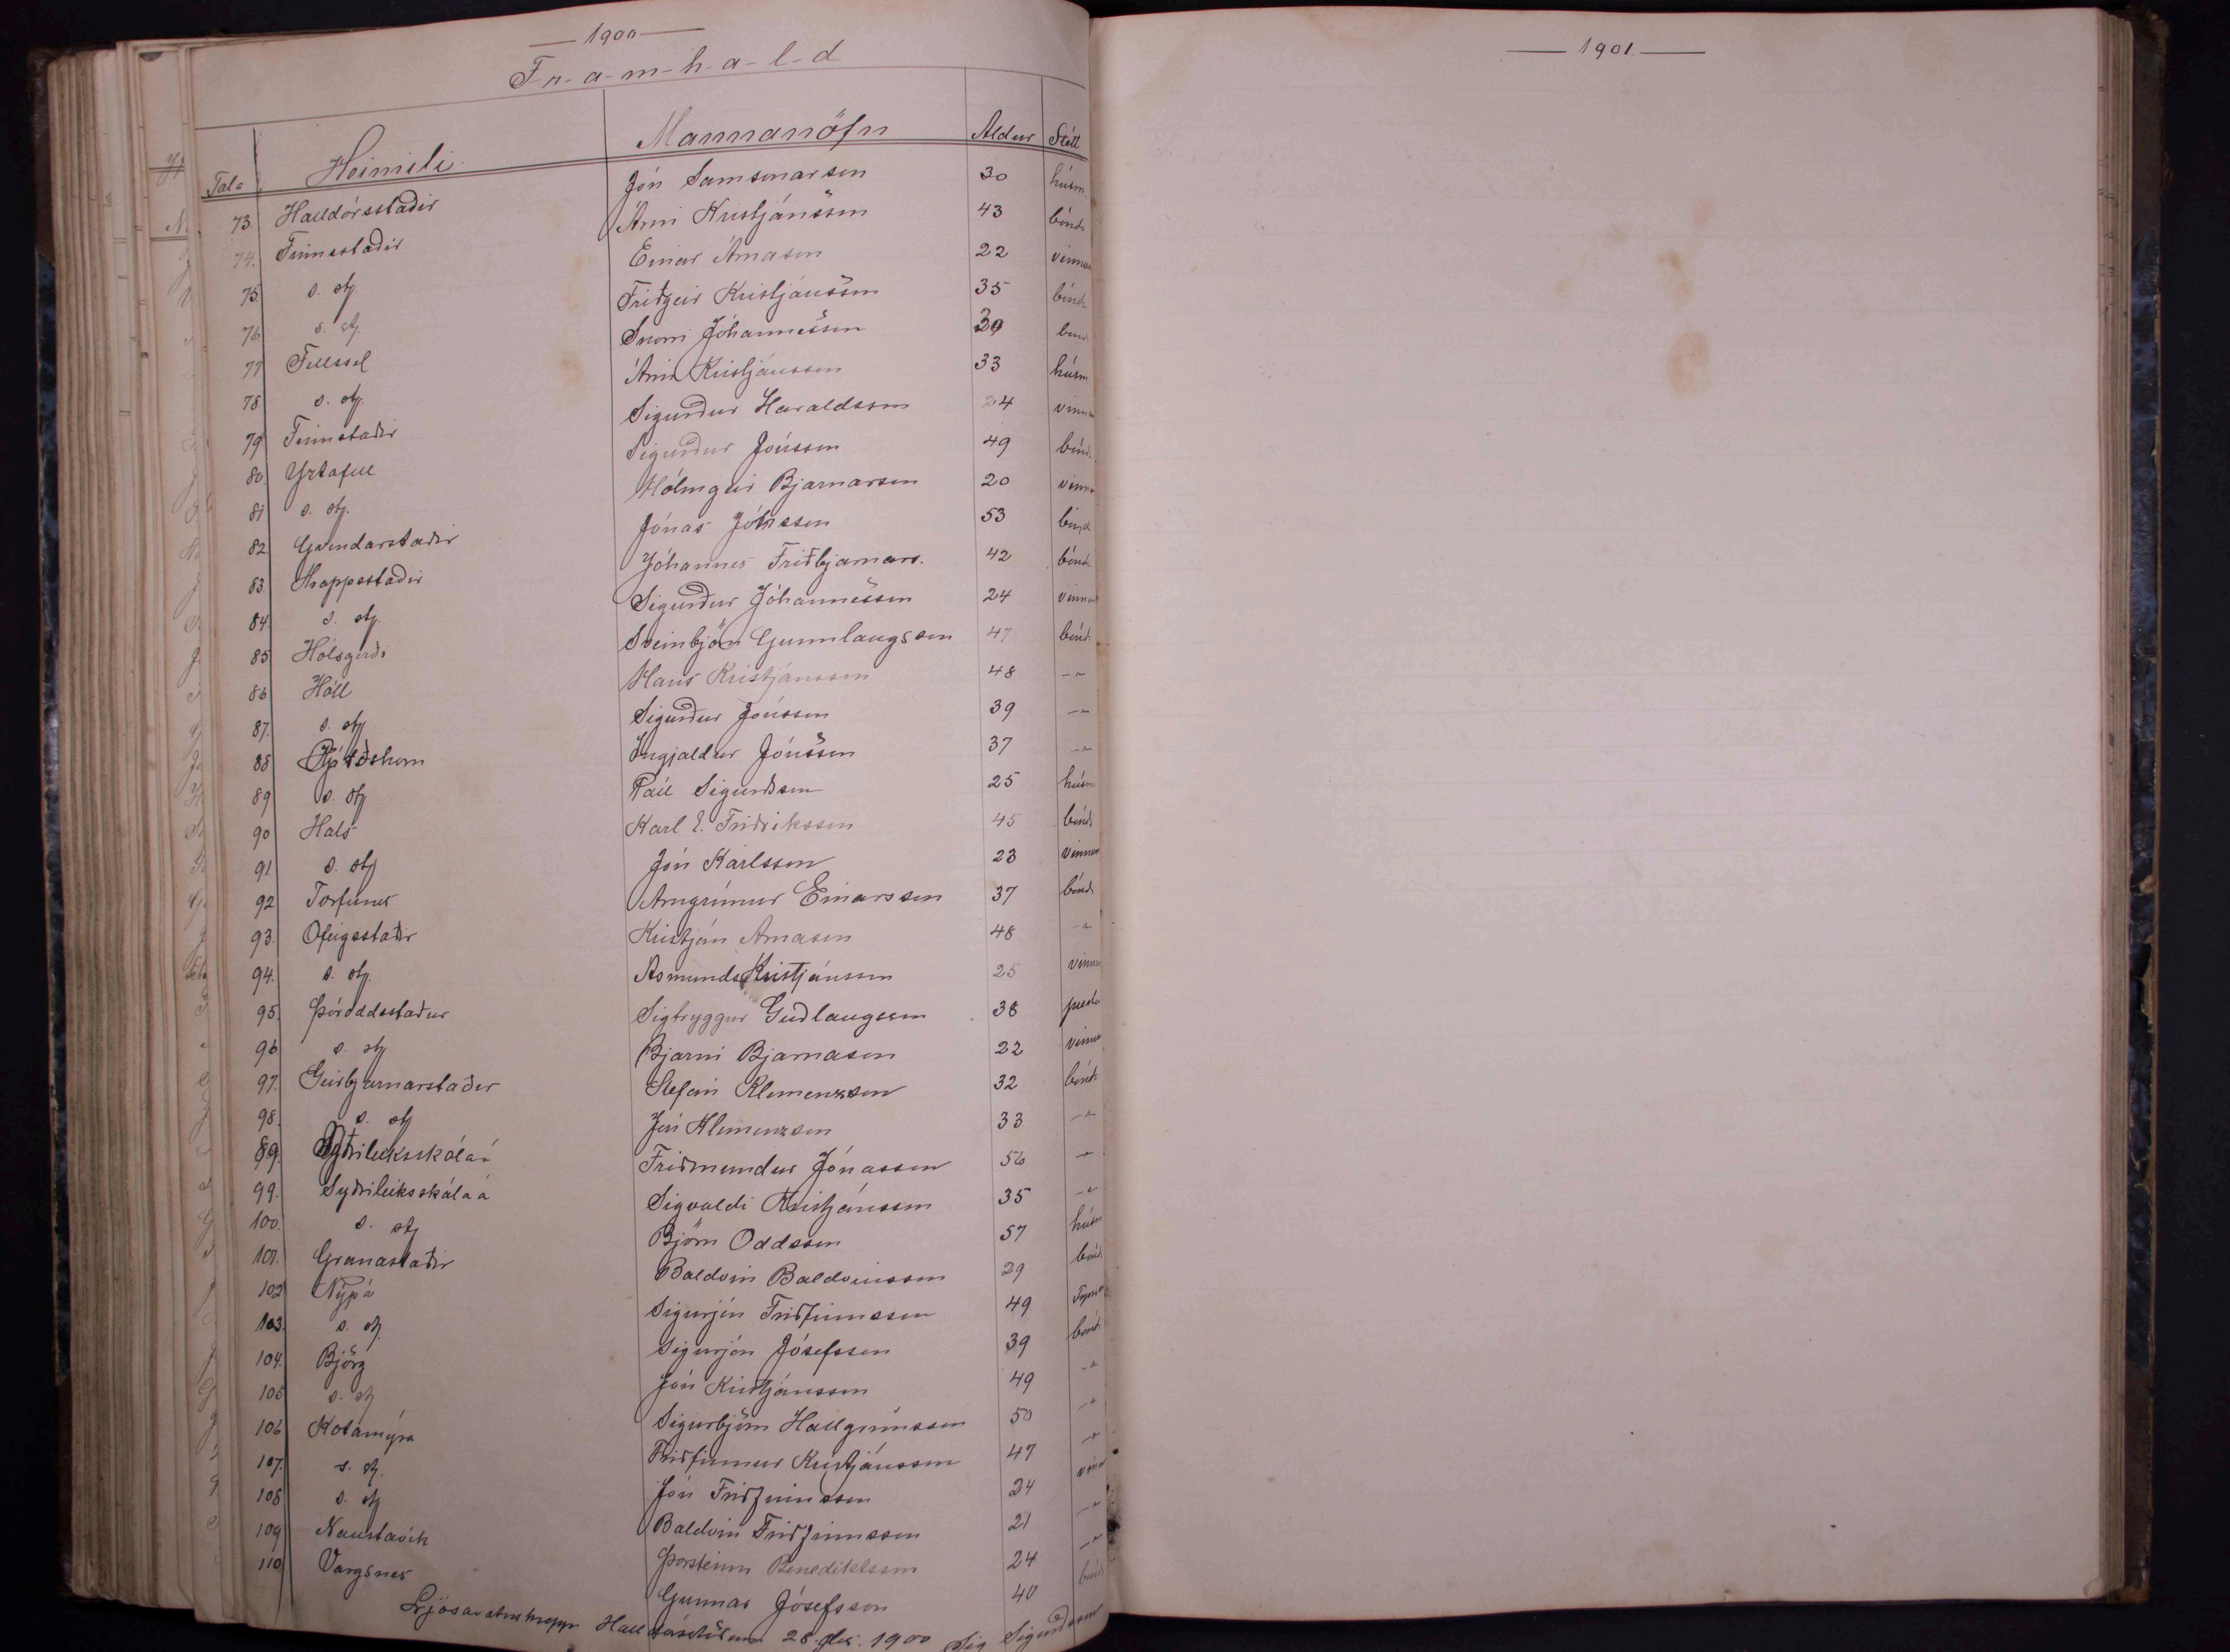 — 1900 —
F-r-a-m-h-a-l-d
Tala Heimili Mannanöfn Aldur Stétt
73. Halldórsstaðir Jón Samsonarson 30 húsm
74. Finnsstaðir Árni Kristjánsson 43 bóndi
75. s. st. Einar Árnason 22 vinnum
76 s. st. Friðgeir Kristjánsson 35 bóndi
77 Fellssel Snorri Jóhannesson 39 bóndi
78. s. st. Árni Kristjánsson 33 húsm
79. Finnstaðir Sigurður Haraldsson 24 vinnum
80. Yztafell Sigurður Jónsson 49 bóndi
81 s. st. Hólmgeir Bjarnarson 20 vinnum
82 Gvendarstaðir Jónas Jónsson 53 bóndi
83. Hrappsstaðir Jóhannes Friðbjarnars. 42 bóndi
84. s. st. Sigurður Jóhannesson 24 vinnum
85 Hólsgerði Sveinbjörn Gunnlaugsson 47 bóndi
86 Hóll Hans Kristjánsson 48 —〃—
87. s. st Sigurður Jónsson 39 —〃—
88 Ingjaldur Jónsson 37 —〃—
89 s. st Páll Sigurðsson 25 húsm
90 Hals Karl E. Friðriksson 45 bóndi
91 s. st Jón Karlsson 23 vinnum
92 Torfunes Arngrímur Einarsson 37 bóndi
93. Ofeigsstaðir Kristján Arnason 48 —〃—
94. s. st. Asmundur Kristjánsson 25 vinnum
95. Þóroddsstaður Sigtryggur Guðlaugsson 38 prestur
96 s. st Bjarni Bjarnason 22 vinnum
97. Geirbjarnarstaðir Stefán Klemenzson 32 bóndi
98. s. st Jón Klemenzson 33 —〃—
89. Ytrileiksskálaá Friðmundur Jónasson 56 —〃—
99. Syðrileiksskálaá Sigvaldi Kristjánsson 35 —〃—
100. s. st Björn Oddsson 57 húsm
101. Granastaðir Baldvin Baldvinsson 29 bóndi
102 Nýpá Sigurjón Friðfinnsson 49
103. s. st. Sigurjón Jósefsson 39 bóndi
104. Björg Jón Kristjánsson 49 —〃—
105 s. st Sigurbjörn Hallgrímsson 50 —〃—
106 Kotamýra Friðfinnur Kristjánsson 47 —〃—
107. s. st. Jón Friðfinnsson 24 vinn
108 s. st Baldvin Friðfinnsson 21 —〃—
109 Naustavík Þorsteinn Benediktsson 24 —〃—
110 Vargsnes Gunnar Jósefsson 40 bóndi
Ljósavatnshrepp Halldórsstöðum 28. des. 1900 Sig. Sigurðsson
— 1901. —